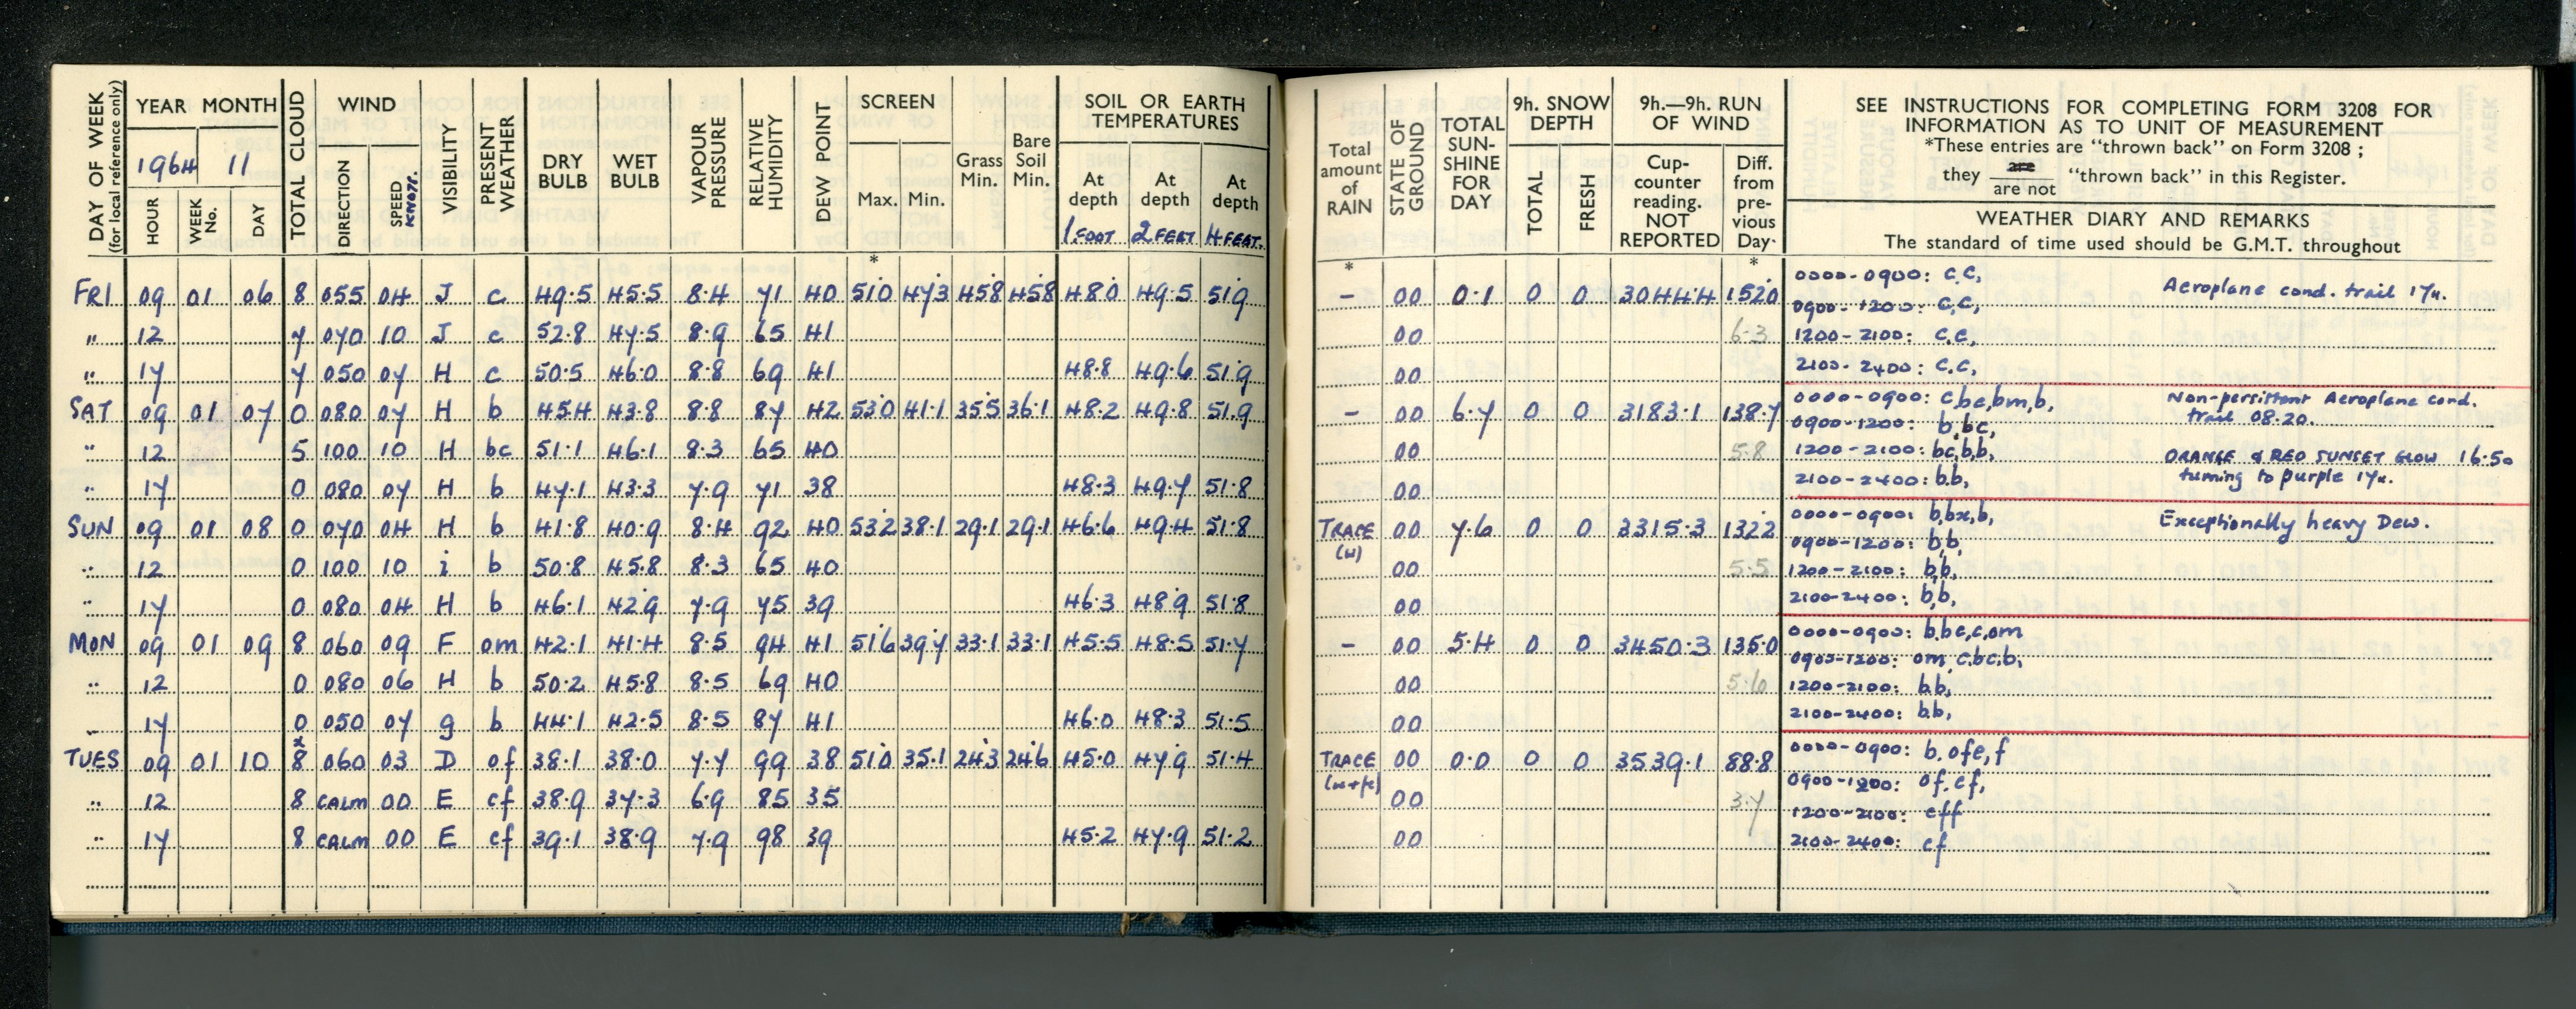 DAY OF WEEK (for local reference only)
YEAR MONTH
1964 11
HOUR WEEK No. DAY
TOTAL CLOUD
WIND
DIRECTION SPEED KNOTS.
VISIBILITY
PRESENT WEATHER
DRY BULB WET BULB
VAPOUR PRESSURE
RELATIVE HUMIDITY
DEW POINT
SCREEN
Max. Min.
Grass Min.
Bare Soil Min.
SOIL OR EARTH TEMPERATURES
At depth At depth At depth
1 FOOT 2 FEET 4 FEET.
*
FRI 09 01 06 8 055 04 J c 49.5 45.5 8.4 71 40 51.0 47.3 45.8 45.8 48.0 49.5 51.9
" 12 7 070 10 J c 52.8 47.5 8.9 65 41
" 17 7 050 07 H c 50.5 46.0 8.8 69 41 48.8 49.6 51.9
SAT 09 01 07 0 080 07 H b 45.4 43.8 8.8 87 42 53.0 41.1 35.5 36.1 48.2 49.8 51.9
" 12 5 100 10 H bc 51.1 46.1 8.3 65 40
" 17 0 080 07 H b 47.1 43.3 7.9 71 38 48.3 49.7 51.8
SUN 09 01 08 0 070 04 H b 41.8 40.9 8.4 92 40 53.2 38.1 29.1 29.1 46.6 49.4 51.8
" 12 0 100 10 i b 50.8 45.8 8.3 65 40
" 17 0 080 04 H b 46.1 42.9 7.9 75 39 46.3 48.9 51.8
MON 09 01 09 8 060 09 F om 42.1 41.4 8.5 94 41 51.6 39.7 33.1 33.1 45.5 48.5 51.7
" 12 0 080 06 H b 50.2 45.8 8.5 69 40
" 17 0 050 07 g b 44.1 42.5 8.5 87 41 46.0 48.3 51.5
x
TUES 09 01 10 8 060 03 D of 38.1 38.0 7.7 99 38 51.0 35.1 24.3 24.6 45.0 47.9 51.4
" 12 8 CALM 00 E cf 38.9 37.3 6.9 85 35
" 17 8 CALM 00 E cf 39.1 38.9 7.9 98 39 45.2 47.9 51.2
Total amount of RAIN
STATE OF GROUND
TOTAL SUN-SHINE FOR DAY
9h. SNOW DEPTH
TOTAL FRESH
9h.—9h. RUN OF WIND
Cup-counter reading. NOT REPORTED
Diff. from pre-vious Day.
* *
SEE INSTRUCTIONS FOR COMPLETING FORM 3208 FOR
INFORMATION AS TO UNIT OF MEASUREMENT
*These entries are "thrown back" on Form 3208 ;
they are / are not "thrown back" in this Register.
WEATHER DIARY AND REMARKS
The standard of time used should be G.M.T. throughout
– 00 0.1 0 0 3044.4 152.0 0000-0900: c.c, Aeroplane cond. trail 17u.
0900-1200: c,c,
00 6.3 1200-2100: c.c,
00 2100-2400: c.c,
– 00 6.7 0 0 3183.1 138.7 0000-0900: c,bc,bm,b, Non-persistent Aeroplane cond.
0900-1200: b,bc, trail 08.20.
00 5.8 1200-2100: bc,b,b, ORANGE & RED SUNSET GLOW 16.50
00 2100-2400: b.b, turning to purple 17u.
TRACE 00 7.6 0 0 3315.3 132.2 0000-0900: b,bx,b, Exceptionally heavy Dew.
(w) 0900-1200: b,b,
00 5.5 1200-2100: b,b,
00 2100-2400: b,b,
– 00 5.4 0 0 3450.3 135.0 0000-0900: b.bc,c,om
0900-1200: om c.bc.b,
00 5.6 1200-2100: b.b,
00 2100-2400: b.b,
TRACE 00 0.0 0 0 3539.1 88.8 0000-0900: b. ofe, f
0900-1200: of. cf,
00 3.7 1200-2100: cff
00 2100-2400: cf